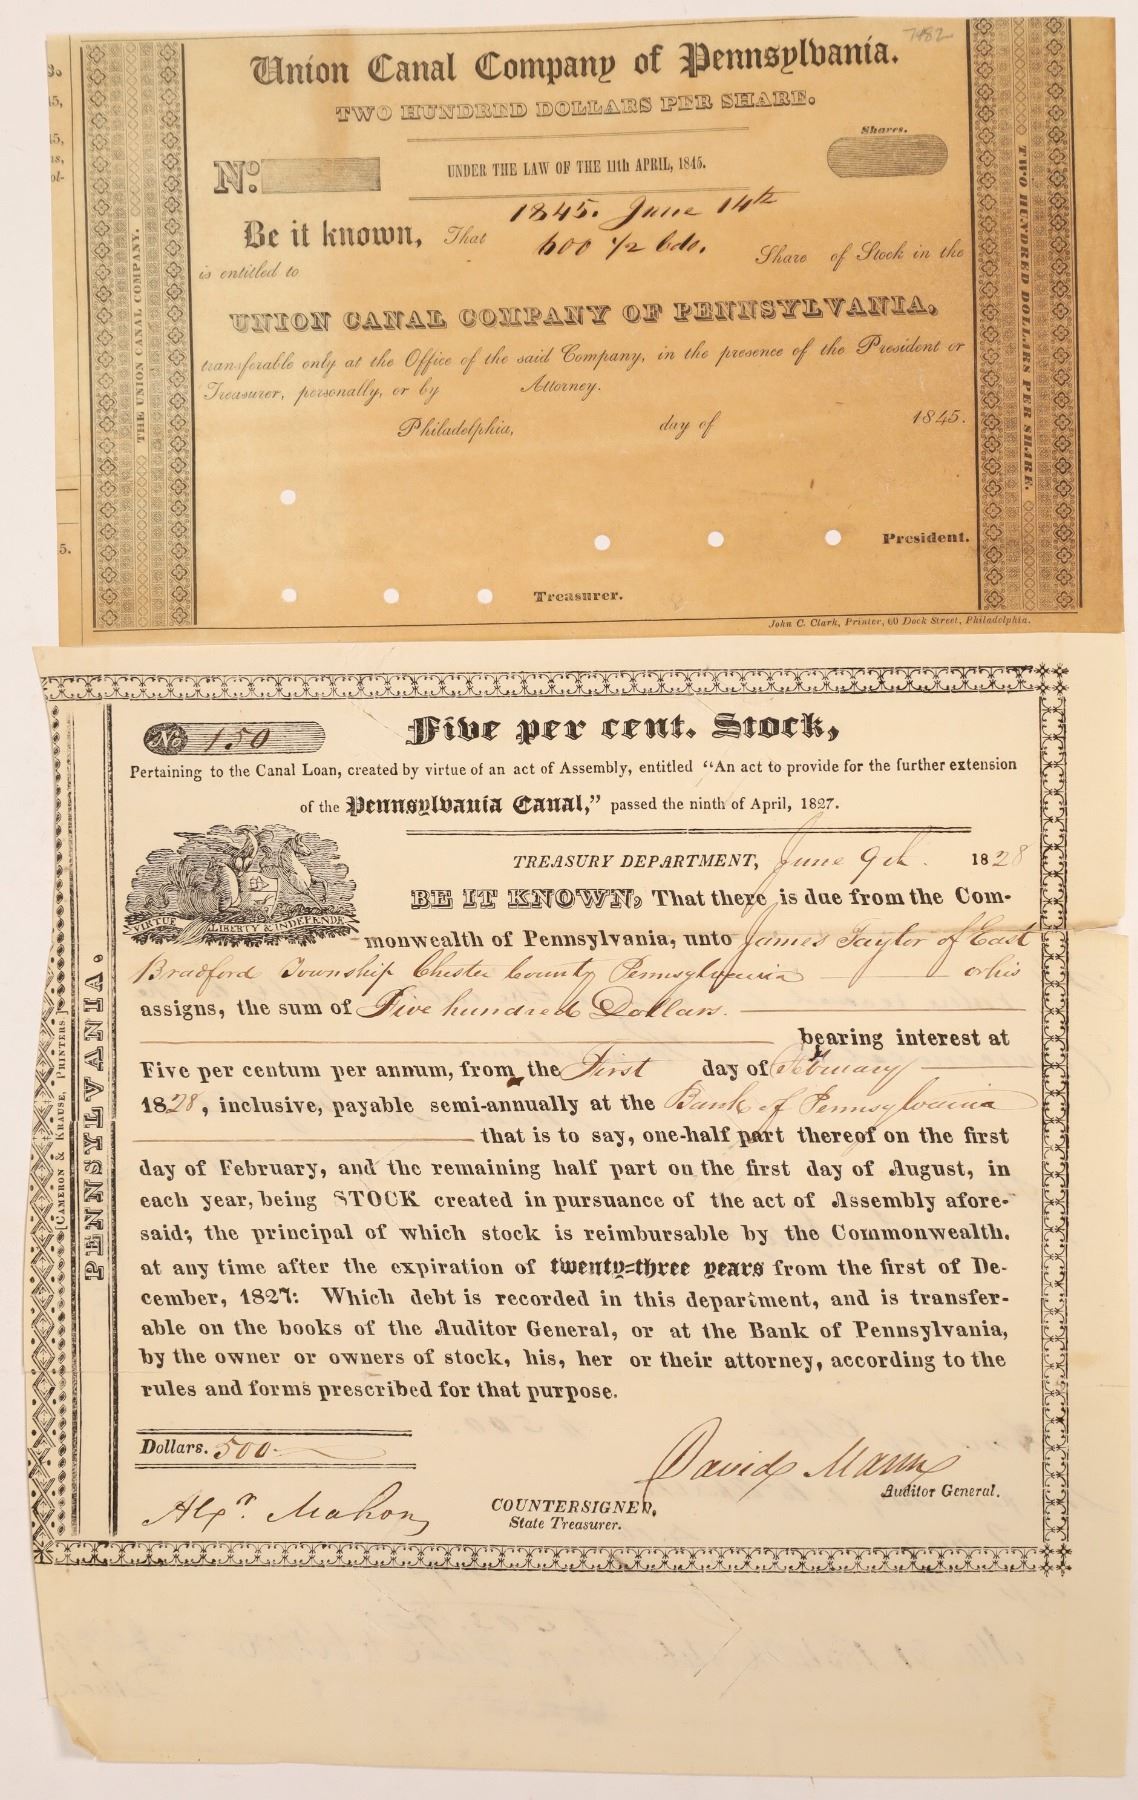 7482
Union Canal Company of Pennsylvania.
TWO HUNDRED DOLLARS PER SHARE.
Shares.
No.
UNDER THE LAW OF THE 11th APRIL, 1845.
1845. June 14th
Be it known, That
600 1/2 bds.
Share of Stock in the
is entitled to
UNION CANAL COMPANY OF PENNSYLVANIA,
transferable only at the Office of the said Company, in the presence of the President or
Treasurer, personally, or by Attorney.
Philadelphia, day of 1845.
President.
Treasurer.
John C. Clark, Printer, 60 Dock Street, Philadelphia.
THE UNION CANAL COMPANY.
TWO HUNDRED DOLLARS PER SHARE.
5.
No 150
Five per cent. Stock,
Pertaining to the Canal Loan, created by virtue of an act of Assembly, entitled "An act to provide for the further extension
of the Pennsylvania Canal," passed the ninth of April, 1827.
TREASURY DEPARTMENT, June 9th. 1828
VIRTUE LIBERTY & INDEPENDE
BE IT KNOWN, That there is due from the Com-
monwealth of Pennsylvania, unto James Taylor of East
Bradford Township Chester County Pennsylvania or his
assigns, the sum of Five hundred Dollars.
bearing interest at
Five per centum per annum, from the First day of February
1828, inclusive, payable semi-annually at the Bank of Pennsylvania
that is to say, one-half part thereof on the first
day of February, and the remaining half part on the first day of August, in
each year, being STOCK created in pursuance of the act of Assembly afore-
said; the principal of which stock is reimbursable by the Commonwealth,
at any time after the expiration of twenty-three years from the first of De-
cember, 1827: Which debt is recorded in this department, and is transfer-
able on the books of the Auditor General, or at the Bank of Pennsylvania,
by the owner or owners of stock, his, her or their attorney, according to the
rules and forms prescribed for that purpose.
Dollars. 500
David Mann
Auditor General.
Alexr. Mahon
COUNTERSIGNED,
State Treasurer.
PENNSYLVANIA.
[CAMERON & KRAUSE, PRINTERS.]